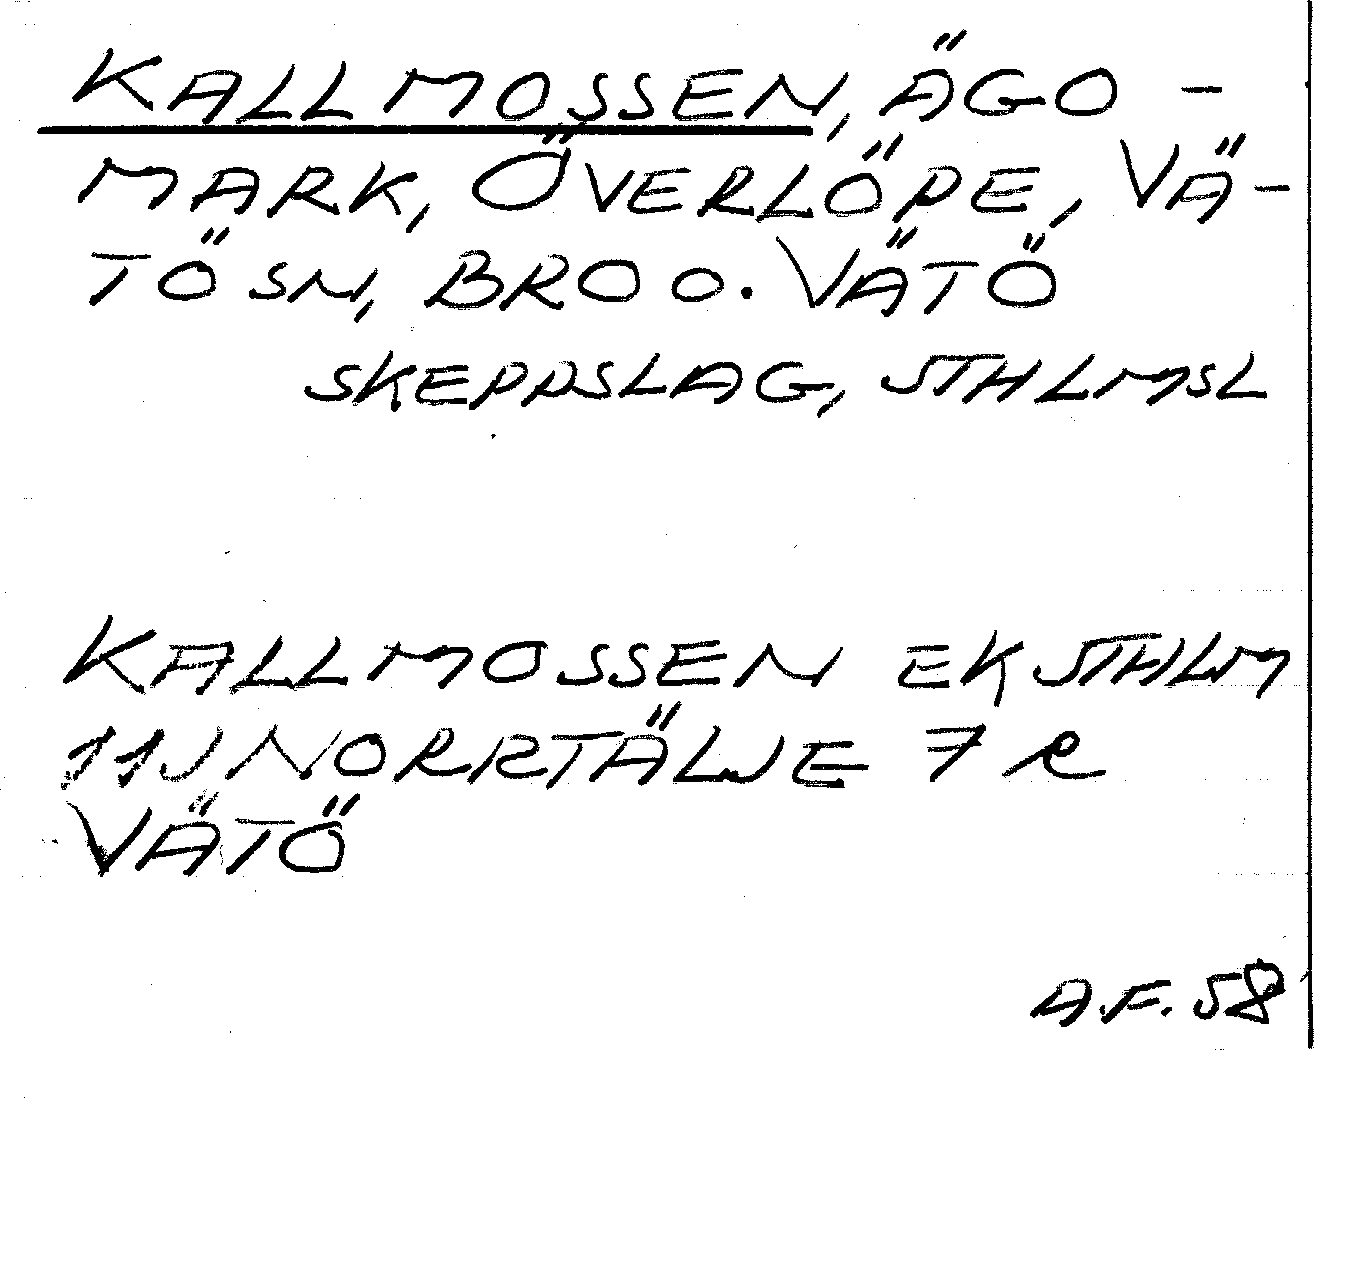 KALLMOSSEN, ÄGO -
MARK, ÖVERLÖPE, VÄ-
TÖ SN, BRO O. VÄTÖ
SKEPPSLAG, STHLMSL
KALLMOSSEN EK STHLM
11J NORRTÄLJE 7 R
VÄTÖ
A.F. 58